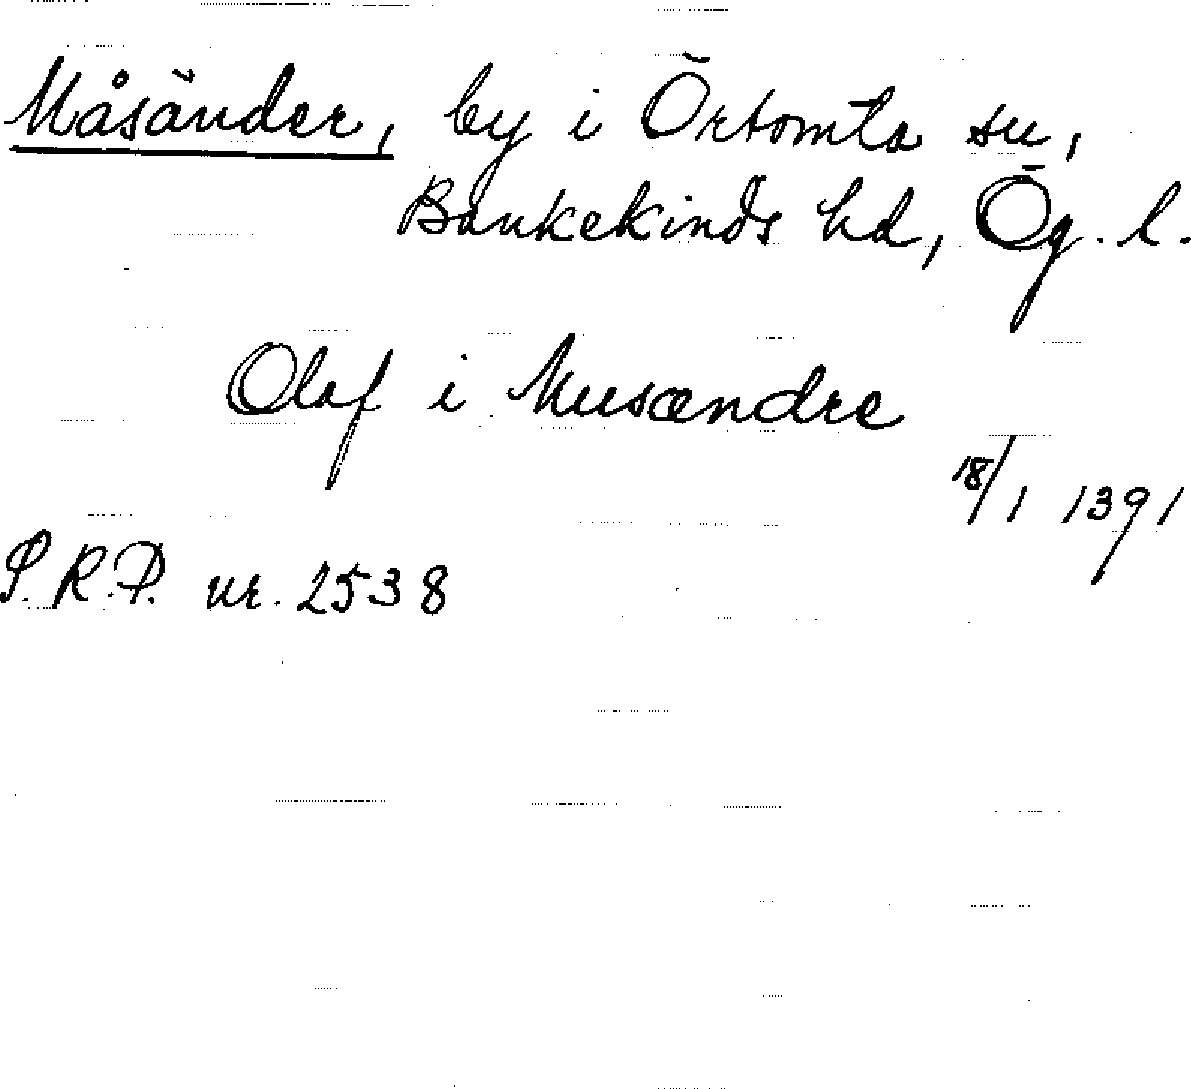 Måsänder, by i Örtomta sn,
Bankekinds hd, Ög. l.
Olaf i Musændre
18/1 1391
S.R.P. nr. 2538